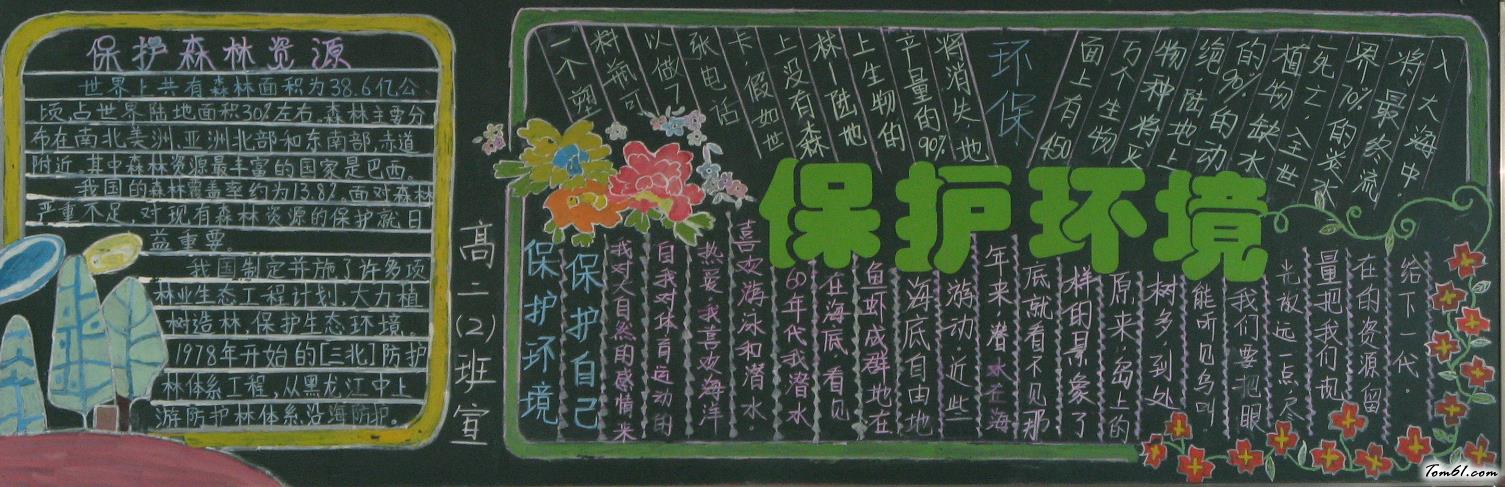 保护森林资源
世界上共有森林面积为38.6亿公
顷,占世界陆地面积30%左右。森林主要分
布在南北美洲、亚洲北部和东南部,赤道
附近,其中森林资源最丰富的国家是巴西。
我国的森林覆盖率约为13.8%。面对森林
严重不足,对现有森林资源的保护就日
益重要。
我国制定并施了许多项
林业生态工程计划,大力植
树造林,保护生态环境
1978年开始的[三北]防护
林体系工程,从黑龙江中上
游防护林体系沿海防护。
高二(2)班宣
环保
一个塑
料瓶可
以做了
张电话
卡,假如世
上没有森
林—陆地
上生物的
产量的90%
将消失地
面上有450
万个生物
物种将灭
绝,陆地上
的90%的动
植物缺水
死亡,全世
界70%的淡水
将最终流
入大海中.
保护环境
保护环境
保护自己
我对大自然的感情来
自我对体育运动的
热爱,我喜欢海洋
喜欢游泳和潜水.
60年代我潜水
在海底,看见
鱼虾成群地在
海底自由地
游动近些
年来,潜水在海
底就看不见那
样的景象了
原来,岛上的
树多,到处
能听见鸟叫
我们要把眼
光放远一点,尽
量把我们现
在的资源留
给下一代.
Tom61.com